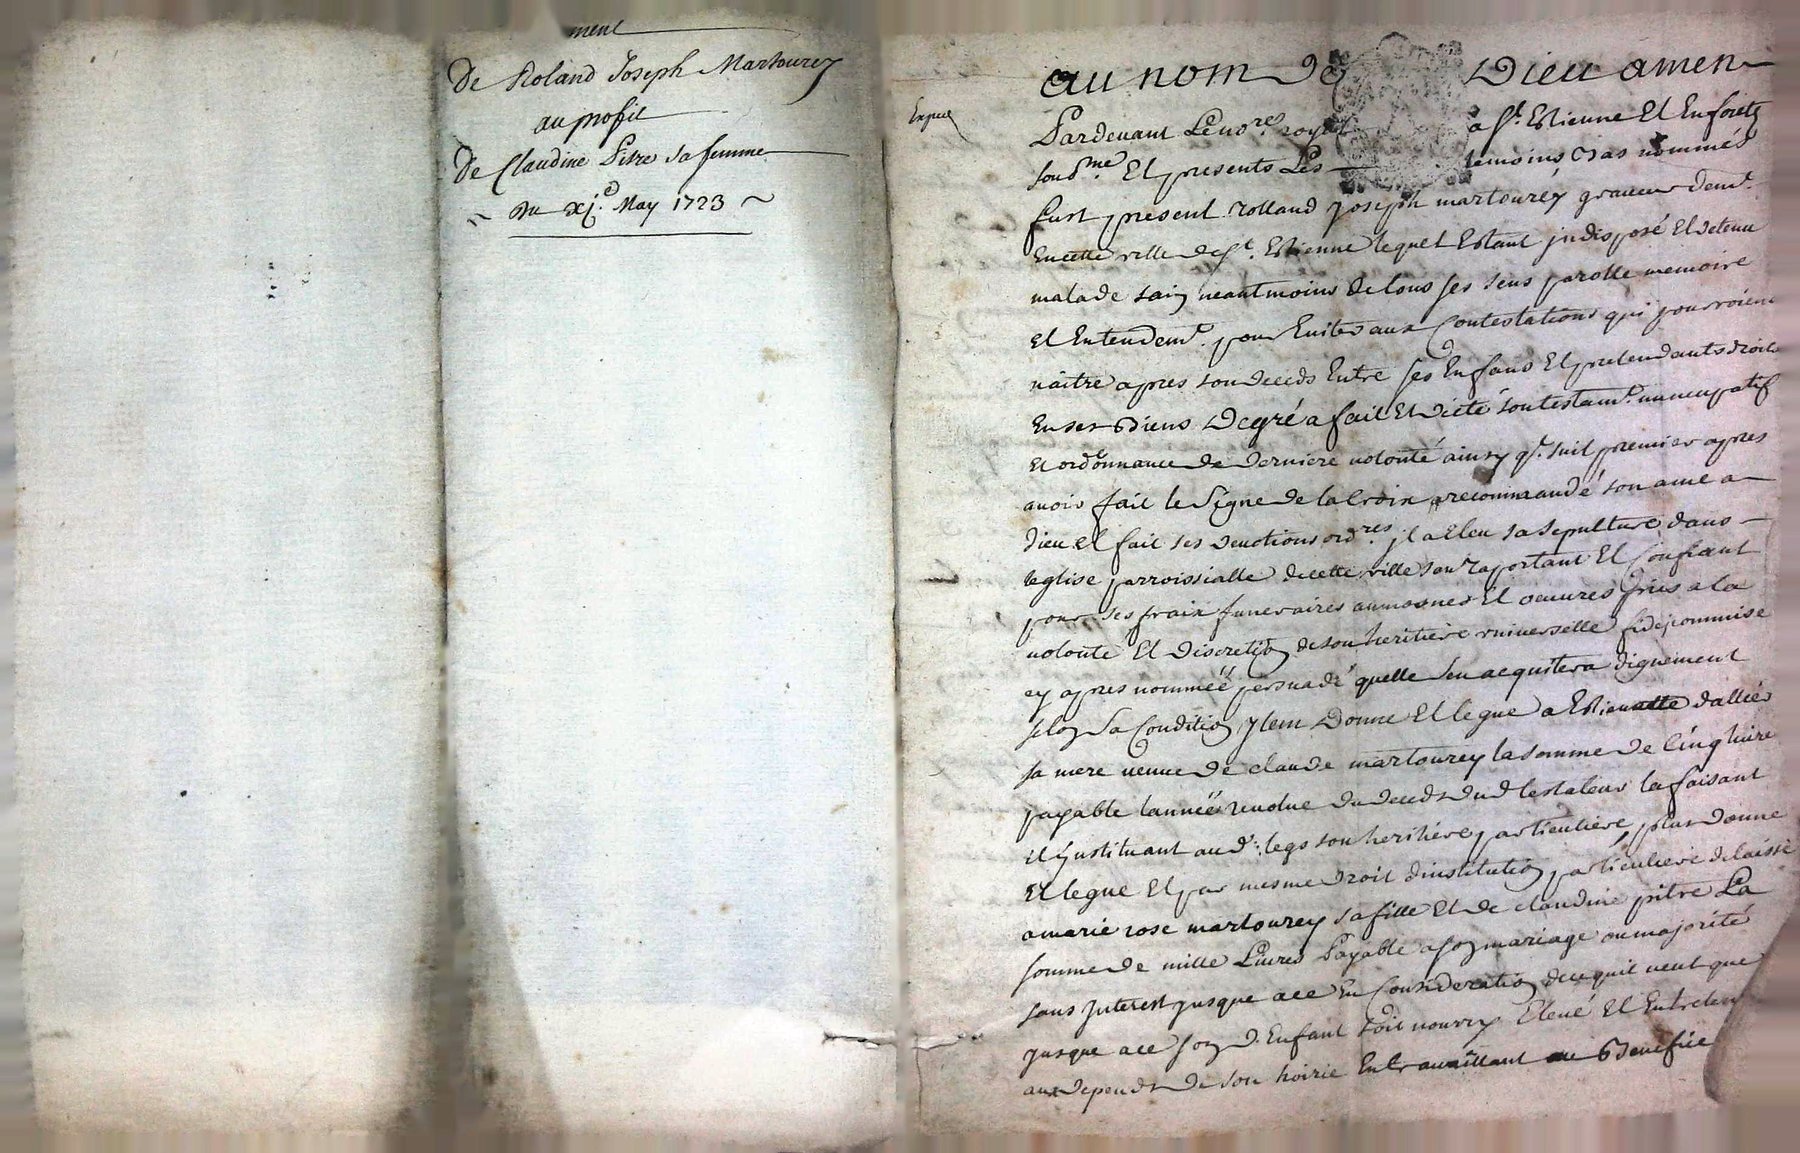 ment
De Roland Joseph Martourey
au profit
De Claudine Pitre sa femme
Du xj.e May 1723
au nom De Dieu amen
Pardevant Le no.re royal a St. Estienne Et En forets
sous.né Et presents Les temoins bas nommés
fust present rolland joseph martourey graveur dem.t
En cette ville de St. Estienne lequel Estant jndisposé Et detenu
malade sain neantmoins de tous ses sens parolle memoire
Et Entendem.t pour Eviter aux Contestations qui pourroient
naitre apres son deceds Entre ses Enfans Et pretendants droits
En ses biens De gré a fait Et dicté son testam.t nuncupatif
Et ordonnance de derniere volonté ainsy q.e suit premier apres
avoir fait le Signe de la Croix recommandé son ame a
Dieu et fait ses devotions ord.res jl a Eleu sa sepulture dans
leglise parroissialle de cette ville son raportant Et Confiant
pour ses fraix funeraires aumosnes Et oeuvres pies a la
volonté Et discretion de son heritiere universelle fideicommise
cy apres nommée persuadé quelle sen acquitera dignement
selon sa Condition jtem Donne Et legue a Estienette dallier
sa mere veuve de claude martourey la somme de Cinq livre
payable lannée revolue du deceds dud testateur la faisant
Et jnstituant aud. legs son heritiere particuliere, plus donne
Et legue Et par mesme droit dinstitution particuliere delaisse
a marie rose martourey sa fille Et de claudine pitre La
somme de mille Livres Payable a son mariage ou majorité
sans jnterest jusque a ce En Consideration de ce quil veut que
jusque a ce son d. Enfant soit nourry Elevé Et Entretenu
aux depends de son hoirie En travaillant au Benefice